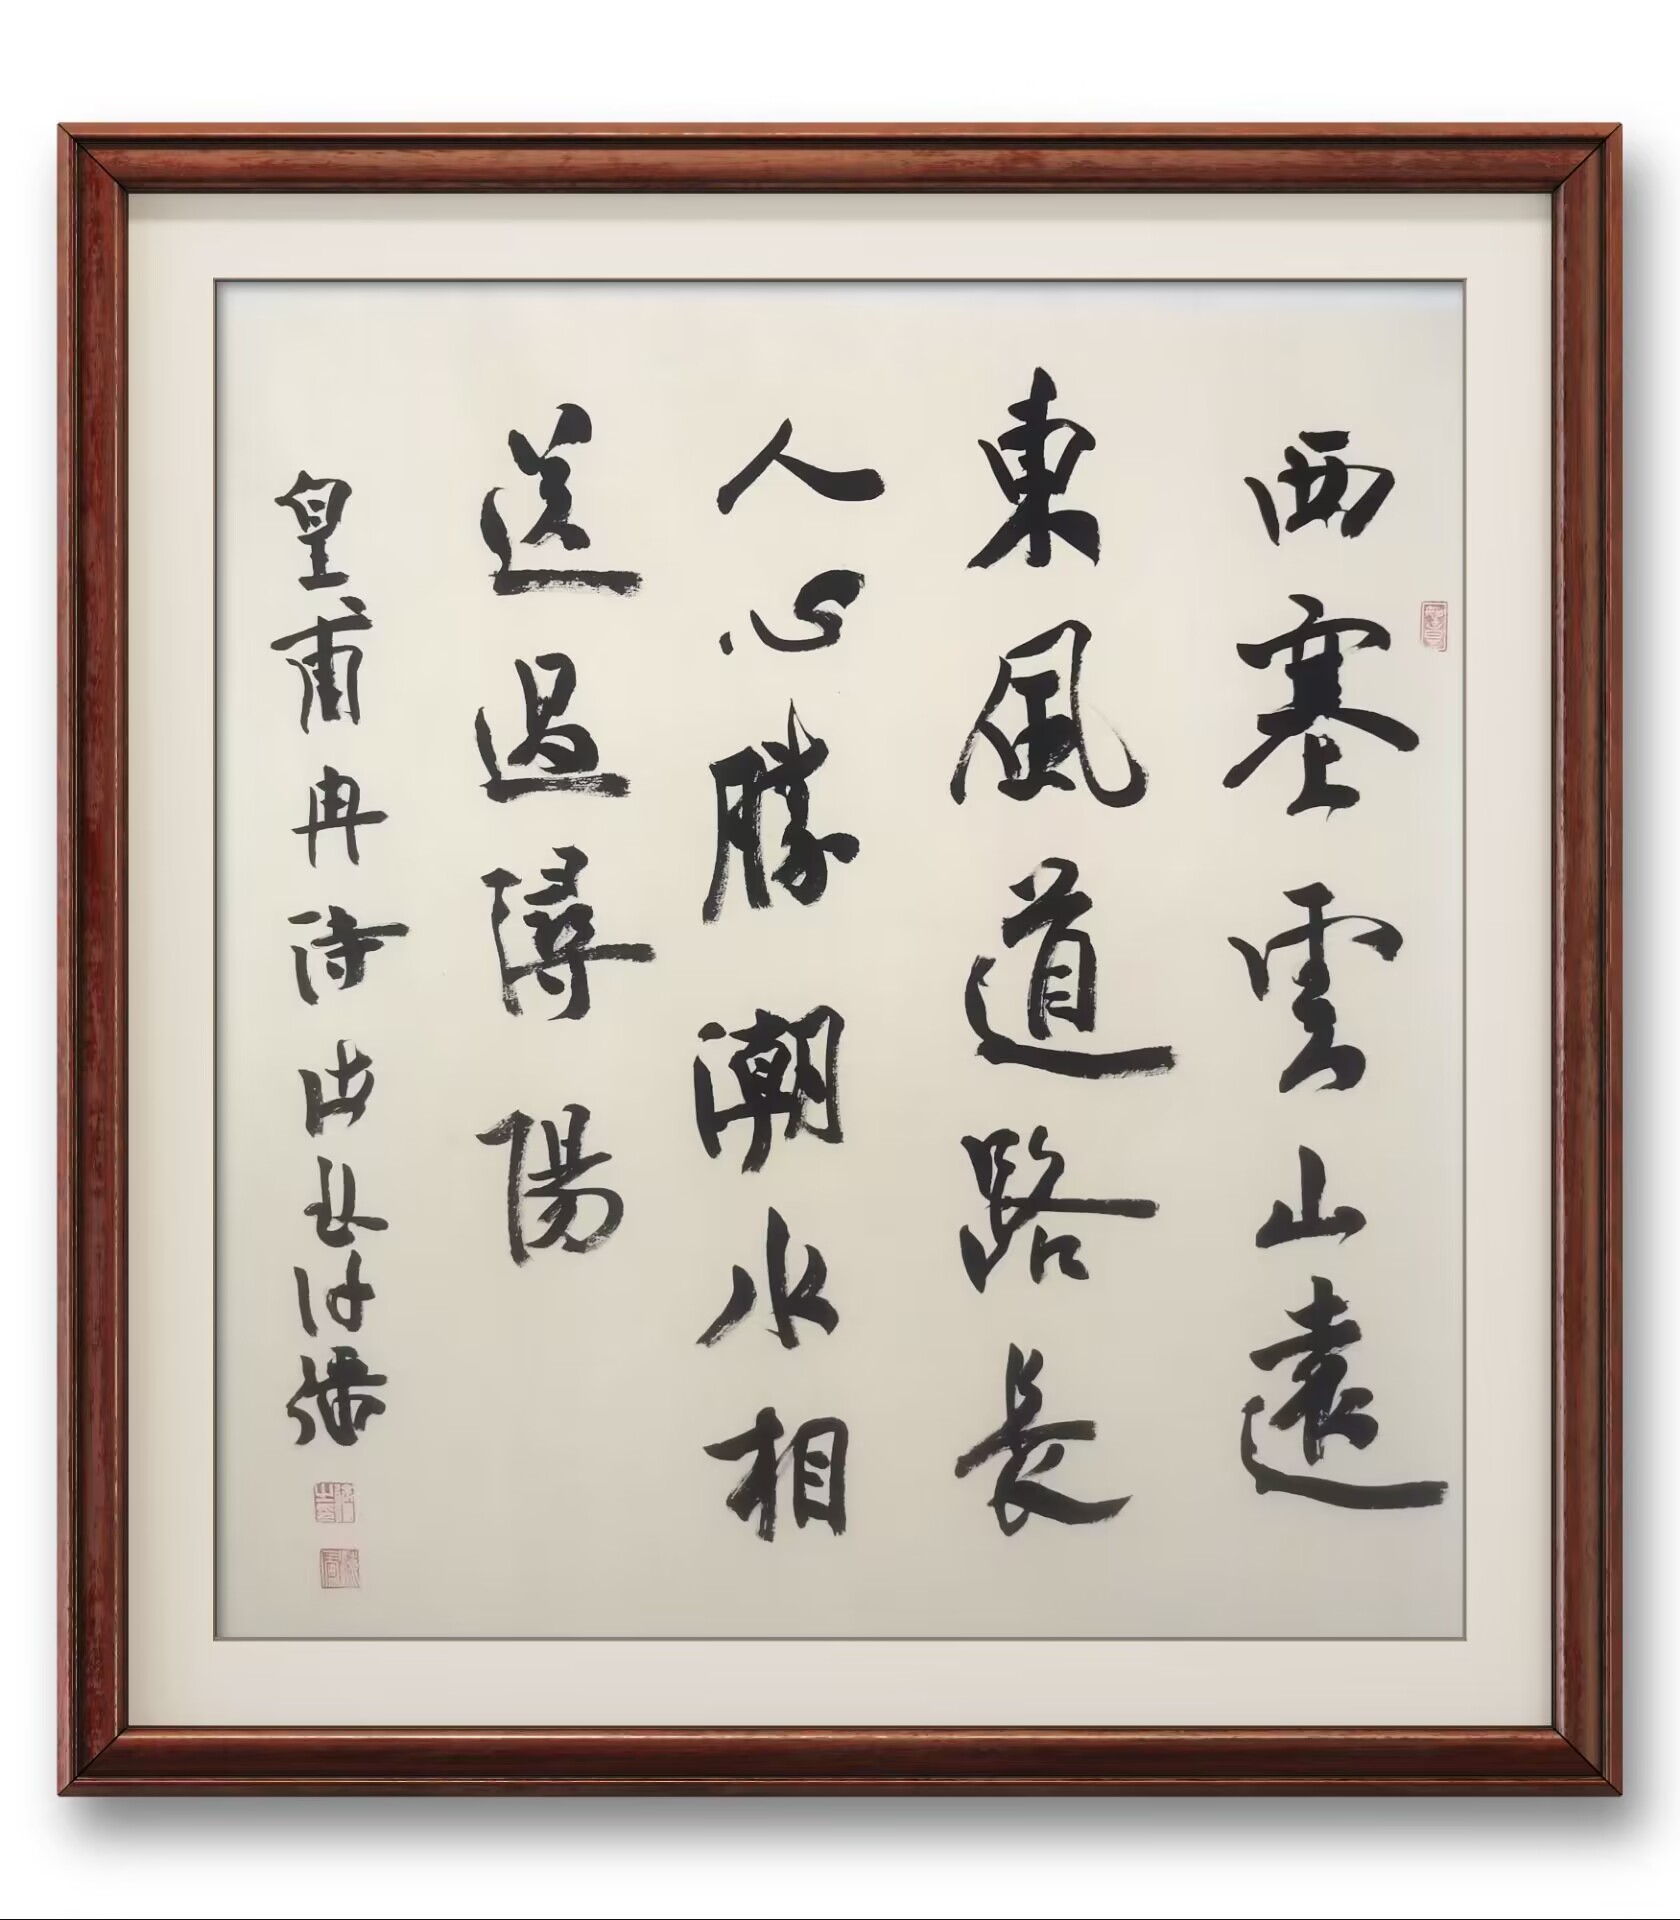 西塞雲山遠
東風道路長
人心勝潮水相
送過潯陽
皇甫冉詩